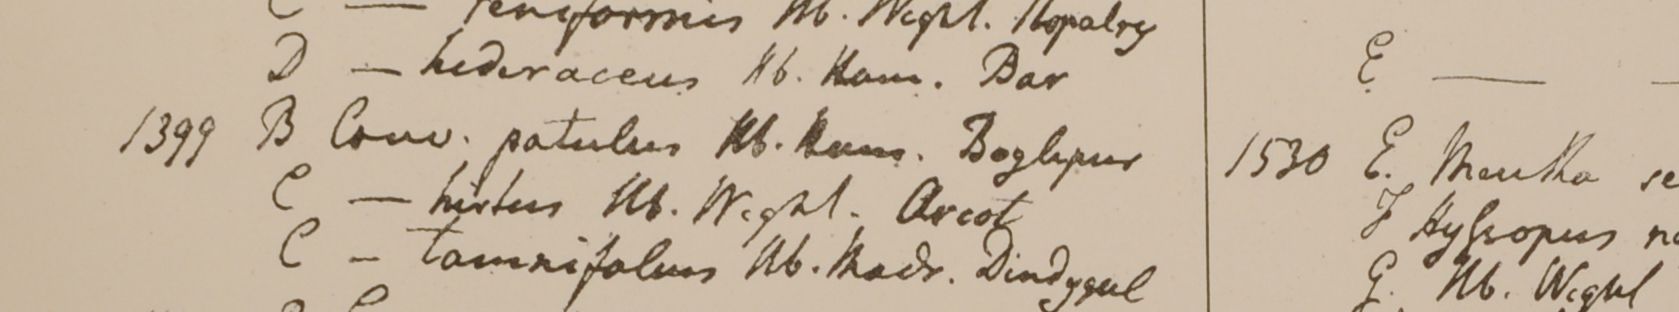 C — reniformis Hb. Wight.
D — hederaceus Hb. Ham. Bar
1399 B Conv. patulus Hb. Ham. Boglipur
C — hirtus Hb. Wight. Arcot
C — tamnifolius Hb. Madr. Dindygul
E —
1530 E. Mentha
F Hyssopus
G. Hb. Wight